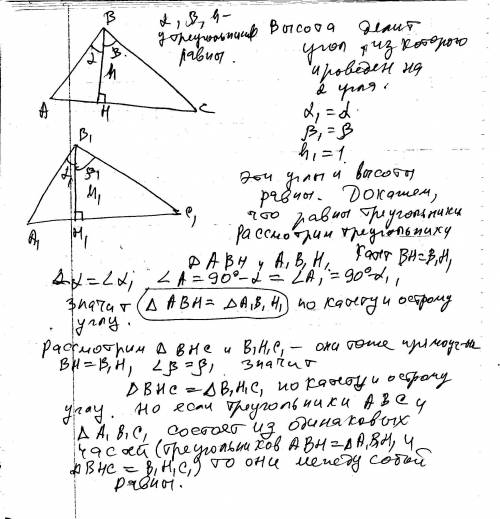 B
α β
h
A H C
α, β, h -
у треугольников
равны.
Высота делит
угол, из которого
проведен на
2 угла.
α₁ = α
β₁ = β
h₁ = 1
B₁
α₁ β₁
h₁
A₁ H₁ C₁
Эти углы и высоты
равны. Докажем,
что равны треугольники
Рассмотрим треугольники
Δ ABH и A₁B₁H₁ катет BH=B₁H₁
∠α = ∠α₁, ∠A = 90° - α = ∠A₁ = 90° - α₁,
значит Δ ABH = Δ A₁B₁H₁ по катету и острому
углу.
Рассмотрим Δ BHC и B₁H₁C₁ - они тоже прямоуг-е
BH = B₁H₁ ∠β = β₁ значит
Δ BHC = Δ B₁H₁C₁ по катету и острому
углу. Но если треугольники ABC и
Δ A₁B₁C₁ состоят из одинаковых
частей (треугольников ABH = ΔA₁B₁H₁ и
ΔBHC = B₁H₁C₁) то они между собой
равны.